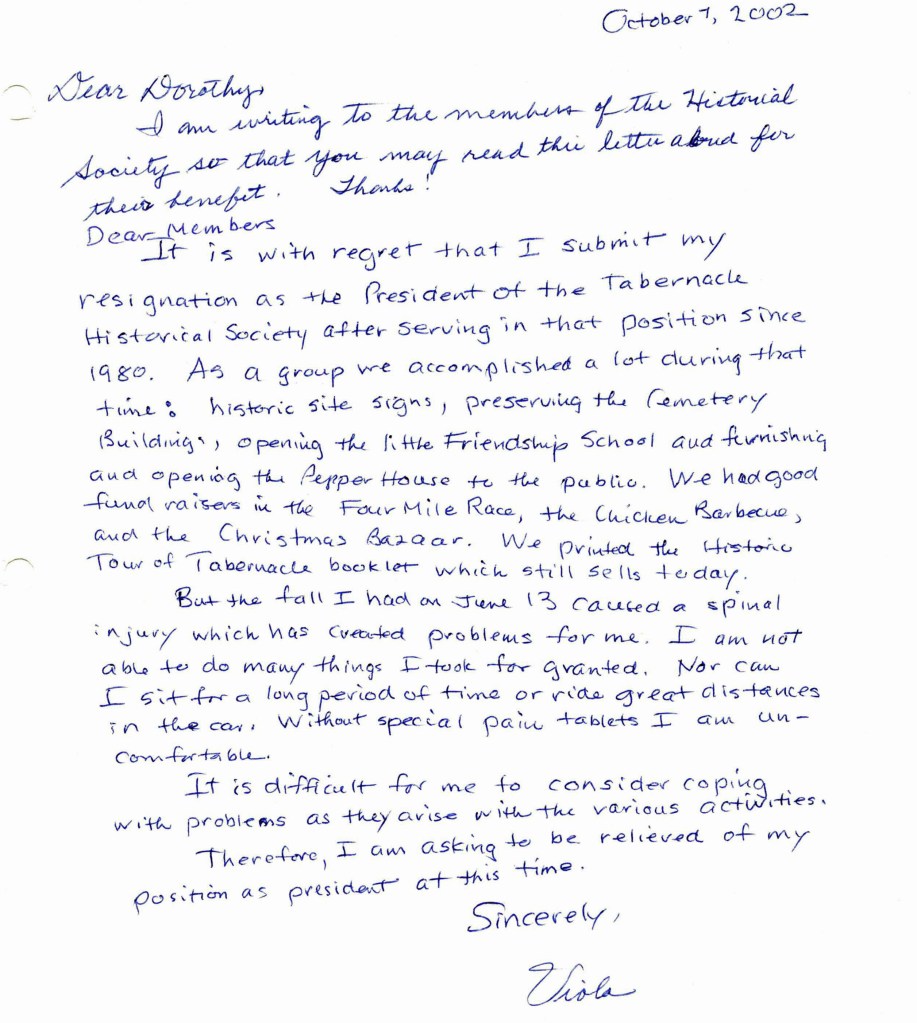 October 7, 2002
Dear Dorothy,
I am writing to the members of the Historial
Society so that you may read this letter aloud for
their benefit. Thanks!
Dear Members
It is with regret that I submit my
resignation as the President of the Tabernacle
Historical Society after serving in that position since
1980. As a group we accomplished a lot during that
time: historic site signs, preserving the Cemetery
Buildings, opening the little Friendship School and furnishing
and opening the Pepper House to the public. We had good
fund raisers in the Four Mile Race, the Chicken Barbecue,
and the Christmas Bazaar. We printed the Historic
Tour of Tabernacle booklet which still sells today.
But the fall I had on June 13 caused a spinal
injury which has created problems for me. I am not
able to do many things I took for granted. Nor can
I sit for a long period of time or ride great distances
in the car. Without special pain tablets I am un-
comfortable.
It is difficult for me to consider coping
with problems as they arise with the various activities.
Therefore, I am asking to be relieved of my
position as president at this time.
Sincerely,
Viola